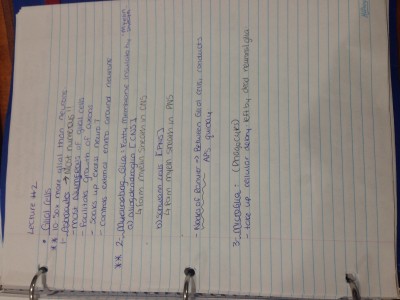 Lecture #2
Glial Cells
** 10-50x more glia than neurons
1- Astrocytes * Most numerous!!
- Most numerous of glial cells
- Facilitate growth of axons
- Soaks up excess neuro T
- Control chemical enviro around neurons
** 2- Myelinating Glia: Fatty Membrane insulated by myelin
a) oligodendroglia [CNS]
↳ Form myelin sheath in CNS
b) Schwann cells [PNS]
↳ Form myelin sheath in PNS
- Nodes of Ranvier → Between glial cells, conducts
APs quickly
3- Microglia - (Phagocytes)
- take up cellular debris left by dead neurons/glia